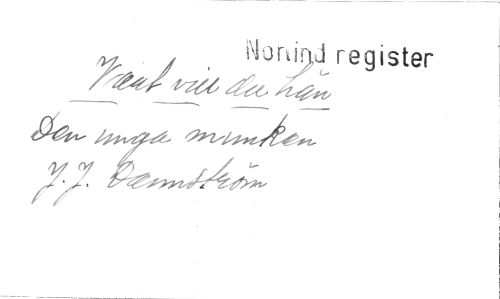 Norlind register
Vart vill du hän
Den unga munken
J. J. Dannström